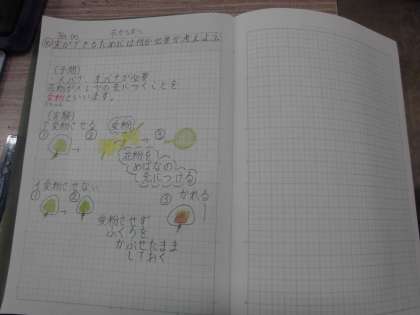 ㋱実ができるためには何が必要か考えよう
(予想)
メバナ、オバナが必要
花粉がメしべの先につくことを
受粉といいます。
(実験)
ア受粉させる
受粉
① ② ③
花粉を
めばなの
先につける
イ受粉させない
① ② ③
かれる
受粉させず
ふくろを
かぶせたまま
しておく